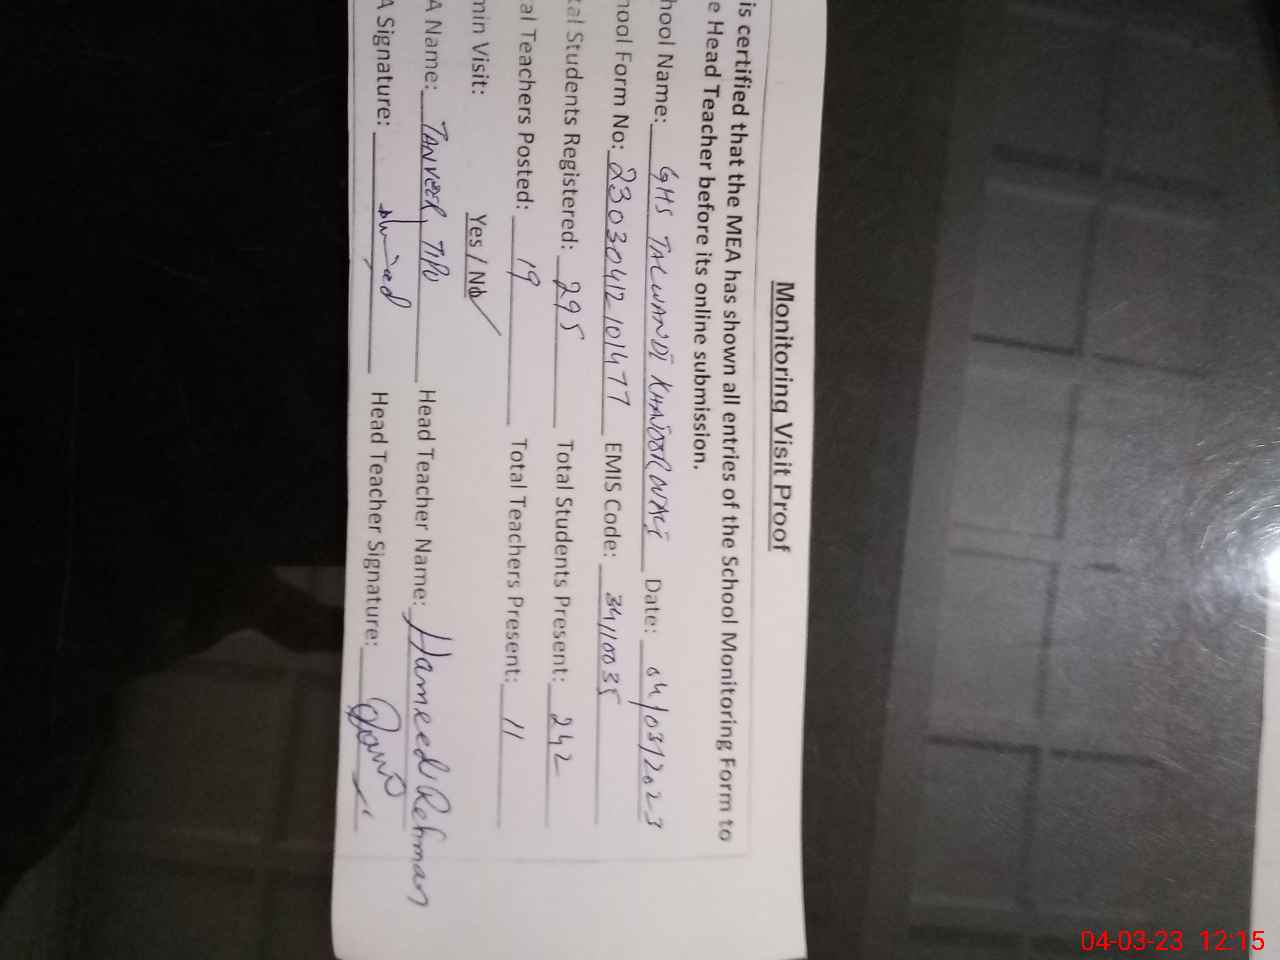 Monitoring Visit Proof
is certified that the MEA has shown all entries of the School Monitoring Form to
e Head Teacher before its online submission.
hool Name: GHS TALWANDI KHAJOORWALI Date: 04/03/2023
hool Form No: 23030412101477 EMIS Code: 34110035
tal Students Registered: 295 Total Students Present: 242
al Teachers Posted: 19 Total Teachers Present: 11
min Visit: Yes / No
A Name: TANVEER TIPU Head Teacher Name: Hameed Rehman
A Signature: Head Teacher Signature:
04-03-23 12:15